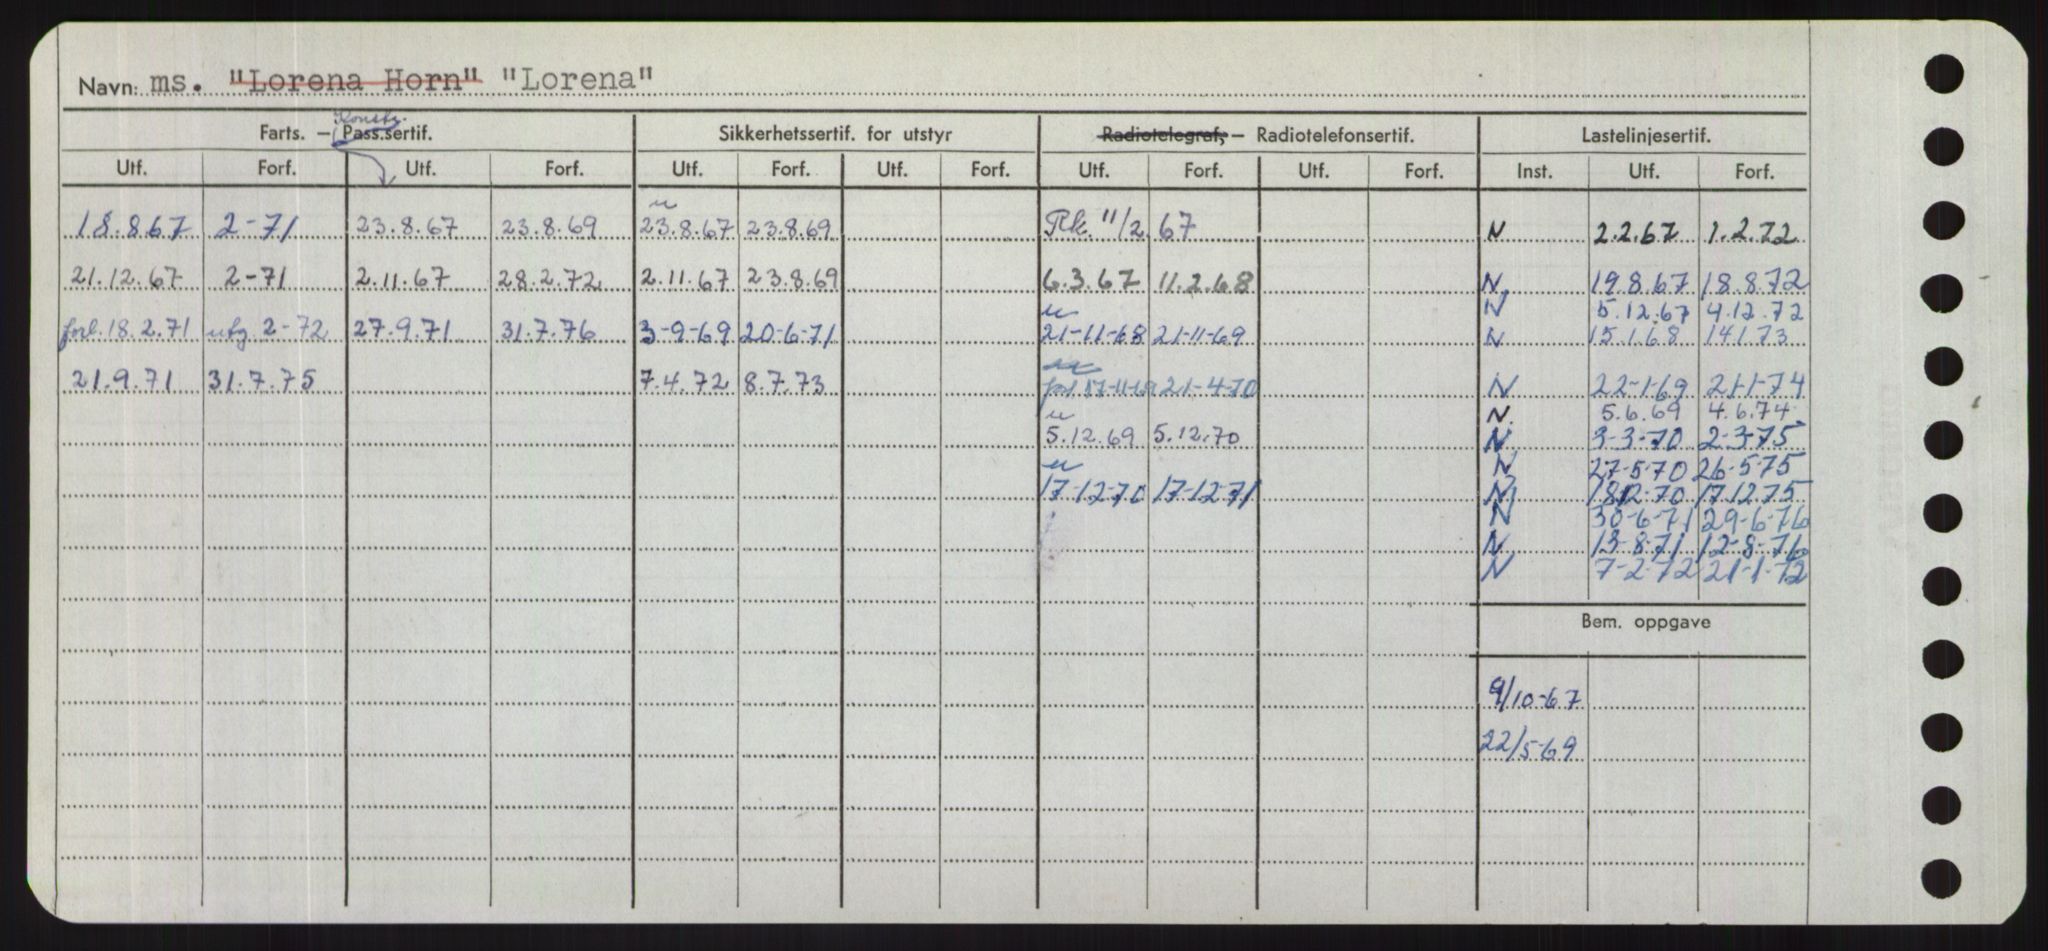 Navn: ms. "Lorena Horn" "Lorena"
Konstr.
Farts. – Pass.sertif. Sikkerhetssertif. for utstyr Radiotelegraf, – Radiotelefonsertif. Lastelinjesertif.
Utf. Forf. Utf. Forf. Utf. Forf. Utf. Forf. Utf. Forf. Utf. Forf. Inst. Utf. Forf.
u
18.8.67 2-71 23.8.67 23.8.69 23.8.67 23.8.69 Rk. 11/2.67 N 2.2.67 1.2.72
21.12.67 2-71 2.11.67 28.2.72 2.11.67 23.8.69 6.3.67 11.2.68 N 19.8.67 18.8.72
u N 5.12.67 4.12.72
forl. 18.2.71 utg. 2-72 27.9.71 31.7.76 3-9-69 20-6-71 21-11-68 21-11-69 N 15.1.68 14.1.73
21.9.71 31.7.75 7.4.72 8.7.73 forl. 17-11-69 21-4-70 N 22-1-69 21-1-74
u N. 5.6.69 4.6.74
5.12.69 5.12.70 N 3-3-70 2-3-75
u N 27-5-70 26-5-75
17-12-70 17-12-71 N 18.12-70 17.12.75
N 30-6-71 29-6-76
N 13-8-71 12-8-76
N 7-2-72 21-1-72
Bem. oppgave
9/10-67
22/5-69